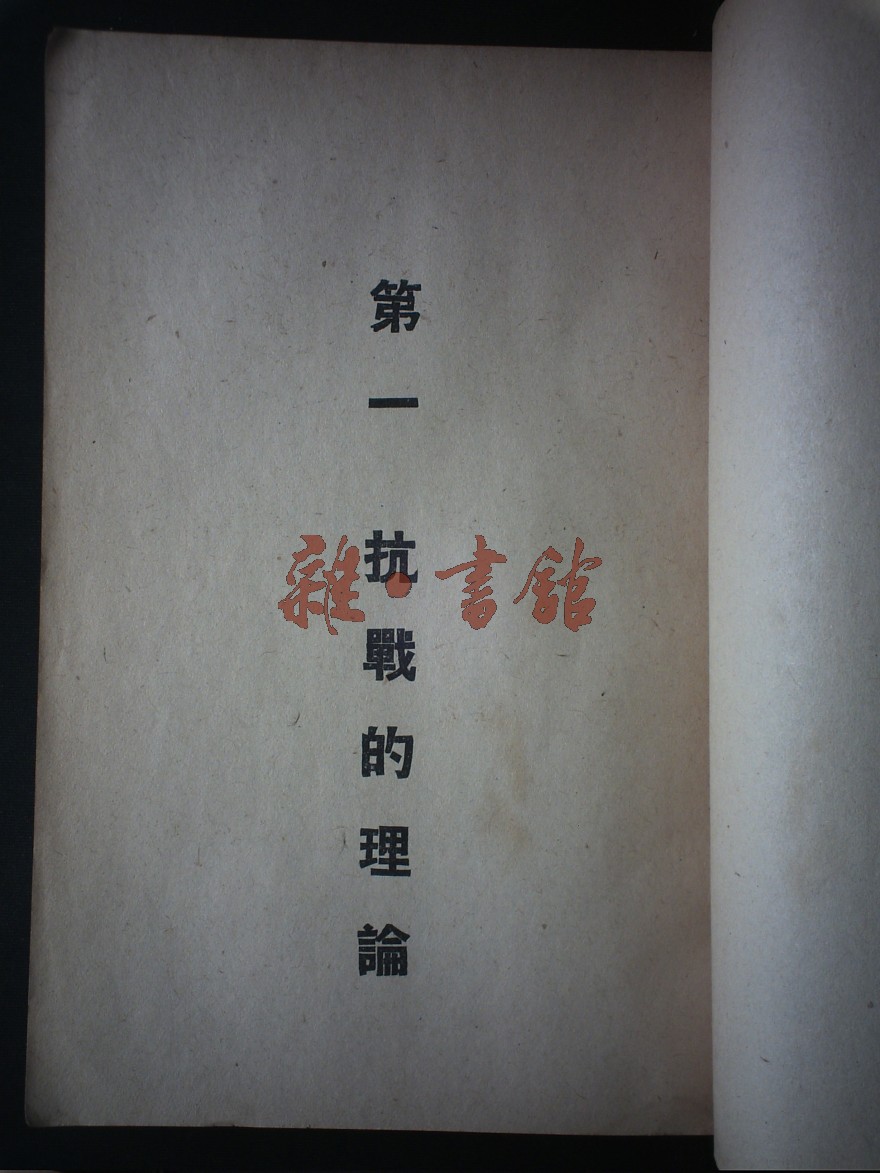 第一 抗戰的理論
雜·書館